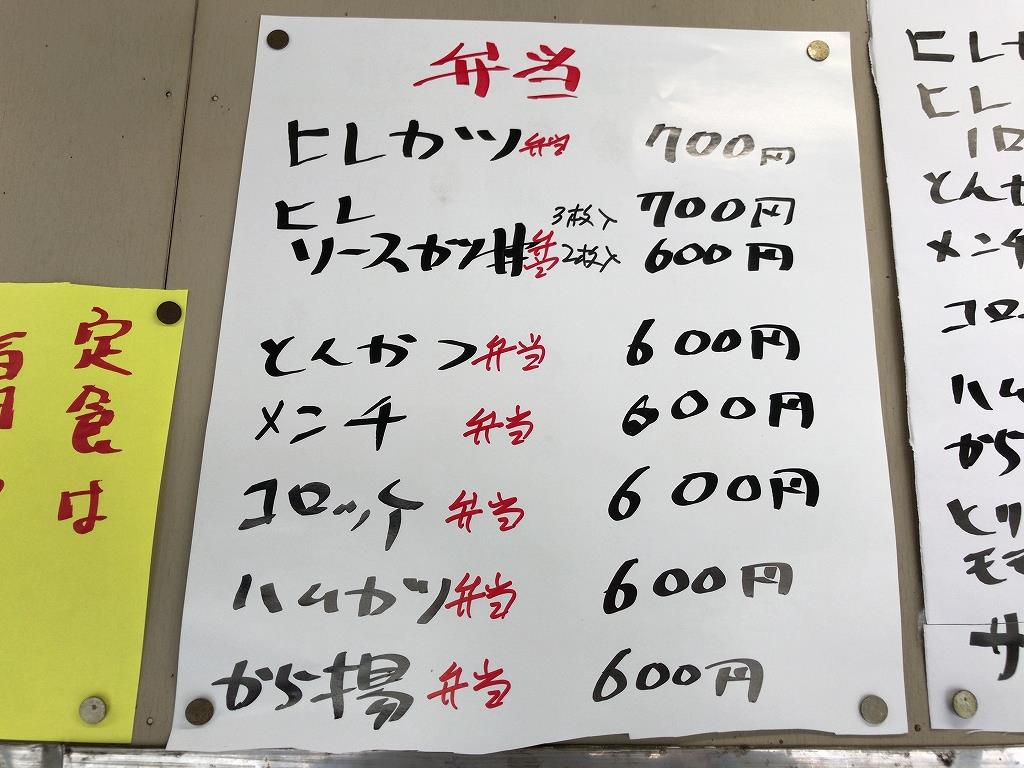 弁当
ヒレカツ弁当 700円
ヒレ 3枚入 700円
ソースカツ丼弁当 2枚入 600円
とんかつ弁当 600円
メンチ 弁当 600円
コロッケ 弁当 600円
ハムカツ弁当 600円
から揚 弁当 600円
定食は
ヒレ
ヒレ
とんか
メンチ
コロ
ハム
から
とり
モモ
サ